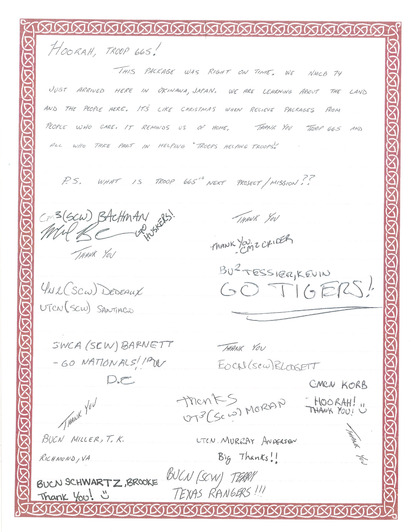 HOORAH, TROOP 665!
THIS PACKAGE WAS RIGHT ON TIME. WE NMCB 74
JUST ARRIVED HERE IN OKINAWA, JAPAN. WE ARE LEARNING ABOUT THE LAND
AND THE PEOPLE HERE. IT'S LIKE CHRISTMAS WHEN RECIEVE PACKAGES FROM
PEOPLE WHO CARE. IT REMINDS US OF HOME. THANK YOU TROOP 665 AND
ALL WHO TAKE PART IN HELPING "TROOPS HELPING TROOPS"
P.S. WHAT IS TROOP 665'S NEXT PROJECT/MISSION??
CM3(SCW) BACHMAN
GO HUSKERS!
THANK YOU
THANK YOU
THANK YOU
-CM2 CRIDER
BU2 TESSIER, KEVIN
GO TIGERS!
YN2(SCW) DEDEAUX
UTCN(SCW) SANTIAGO
SWCA (SCW) BARNETT
- GO NATIONALS!!
D.C
THANK YOU
EOCN(SCW) BLODGETT
CMCN KORB
HOORAH!
THANK YOU!
THANK YOU
Thanks
UT3(SCW) MORAN
BUCN MILLER, T.K.
RICHMOND, VA
UTCN MURRAY ANDERSON
Big Thanks!!
THANK YOU
BUCN SCHWARTZ, BROOKE
Thank You!
BUCN (SCW) TERRY
TEXAS RANGERS!!!